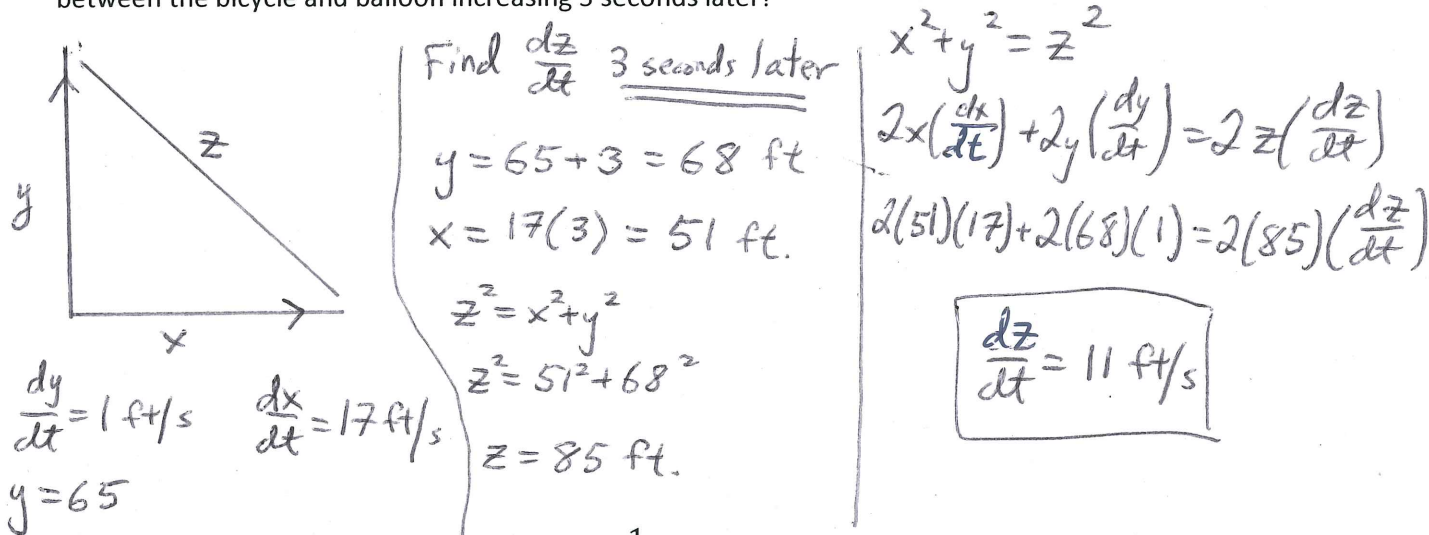 between the bicycle and balloon increasing 3 seconds later?
z
y
x
dy/dt = 1 ft/s dx/dt = 17 ft/s
y = 65
Find dz/dt 3 seconds later
y = 65 + 3 = 68 ft
x = 17(3) = 51 ft.
z² = x² + y²
z² = 51² + 68²
z = 85 ft.
x² + y² = z²
2x(dx/dt) + 2y(dy/dt) = 2z(dz/dt)
2(51)(17) + 2(68)(1) = 2(85)(dz/dt)
dz/dt = 11 ft/s